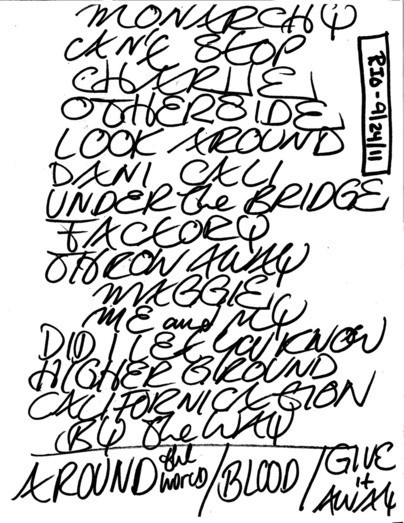 MONARCHY
CAN'T STOP
CHARLIE
OTHERSIDE
LOOK AROUND
DANI CALI
UNDER the BRIDGE
FACTORY
THROW AWAY
MAGGIE
ME and MY
DID I LET YOU KNOW
HIGHER GROUND
CALIFORNICATION
BY the WAY
AROUND the WORLD / BLOOD / GIVE it AWAY
RIO - 9/24/11